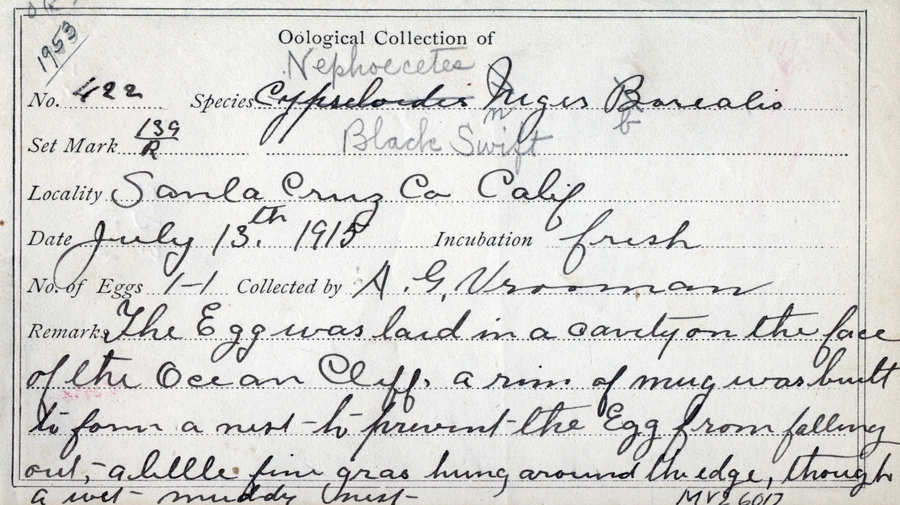 1953
Oölogical Collection of
Nephoecetes
No. 422 Species Cypseloides Niger Borealis
n b
Set Mark 139/R Black Swift
Locality Santa Cruz Co Calif
Date July 13.th 1915 Incubation fresh
No. of Eggs 1-1 Collected by A. G. Vrooman
Remarks The Egg was laid in a cavity on the face
of the Ocean Cliff, a rim of mug was built
to form a nest to prevent the Egg from falling
out, a little fine gras hung around the edge, though
a wet muddy nest